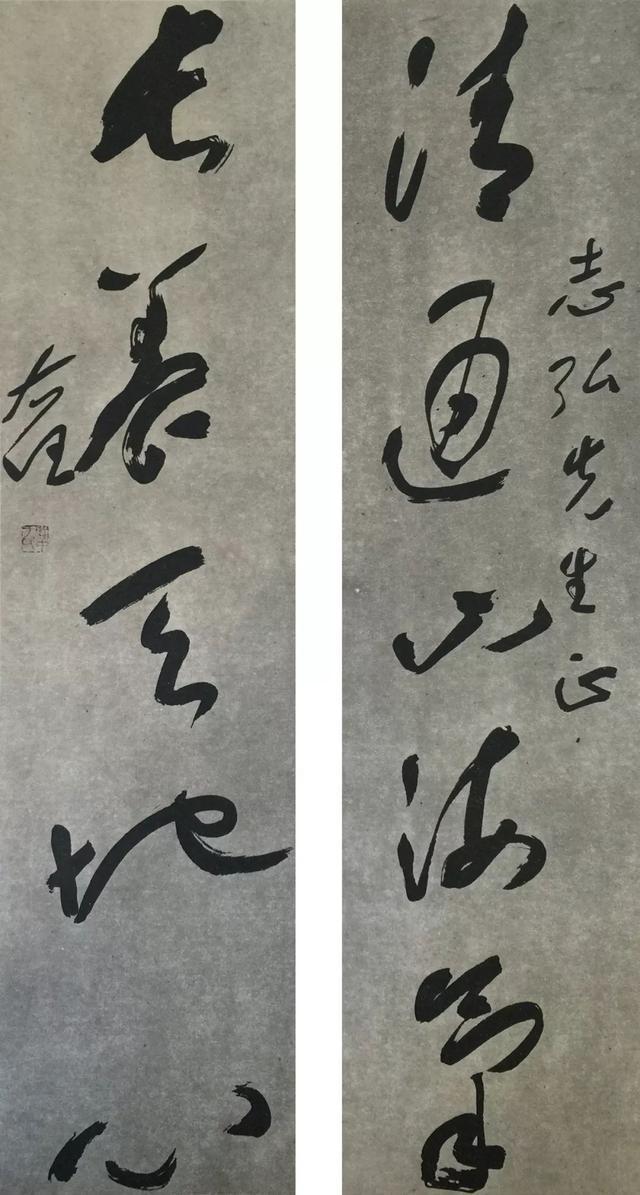 清通山海氣
志弘先生正
長養天地心
右任